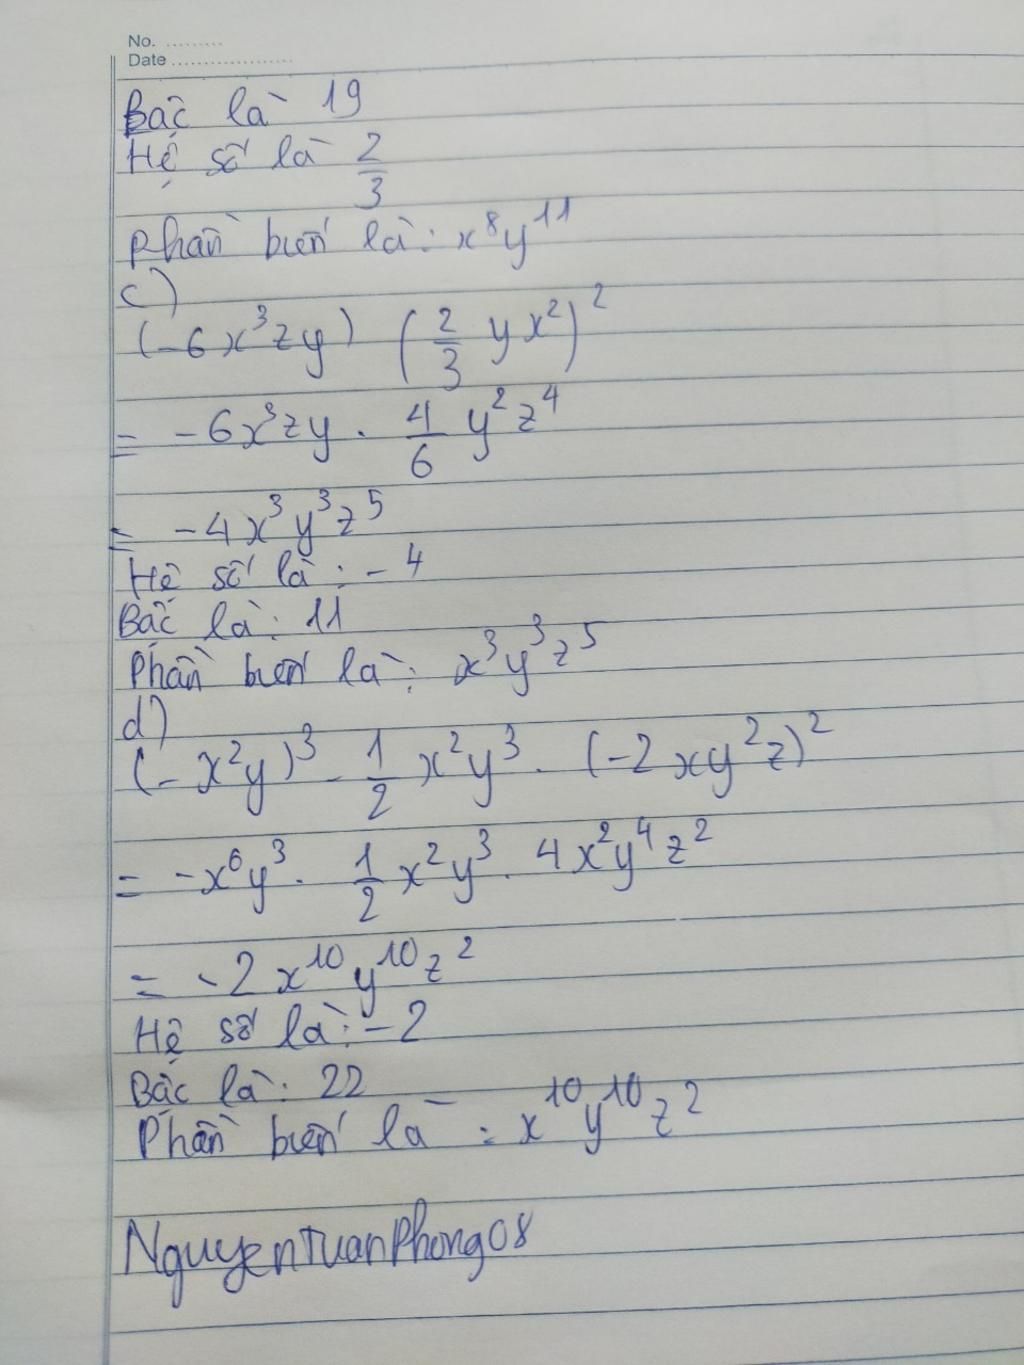 No. .........
Date ...................
Bậc là 19
Hệ số là 2/3
Phần biến là: x⁸y¹¹
c)
(-6x³zy) (2/3 yx²)²
= -6x³zy . 4/6 y²z⁴
= -4x³y³z⁵
Hệ số là: -4
Bậc là: 11
Phần biến là: x³y³z⁵
d)
(-x²y)³ - 1/2 x²y³ . (-2xy²z)²
= -x⁶y³ . 1/2 x²y³ . 4x²y⁴z²
= -2x¹⁰y¹⁰z²
Hệ số là: -2
Bậc là: 22
Phần biến là: x¹⁰y¹⁰z²
NguyenTuanPhong08